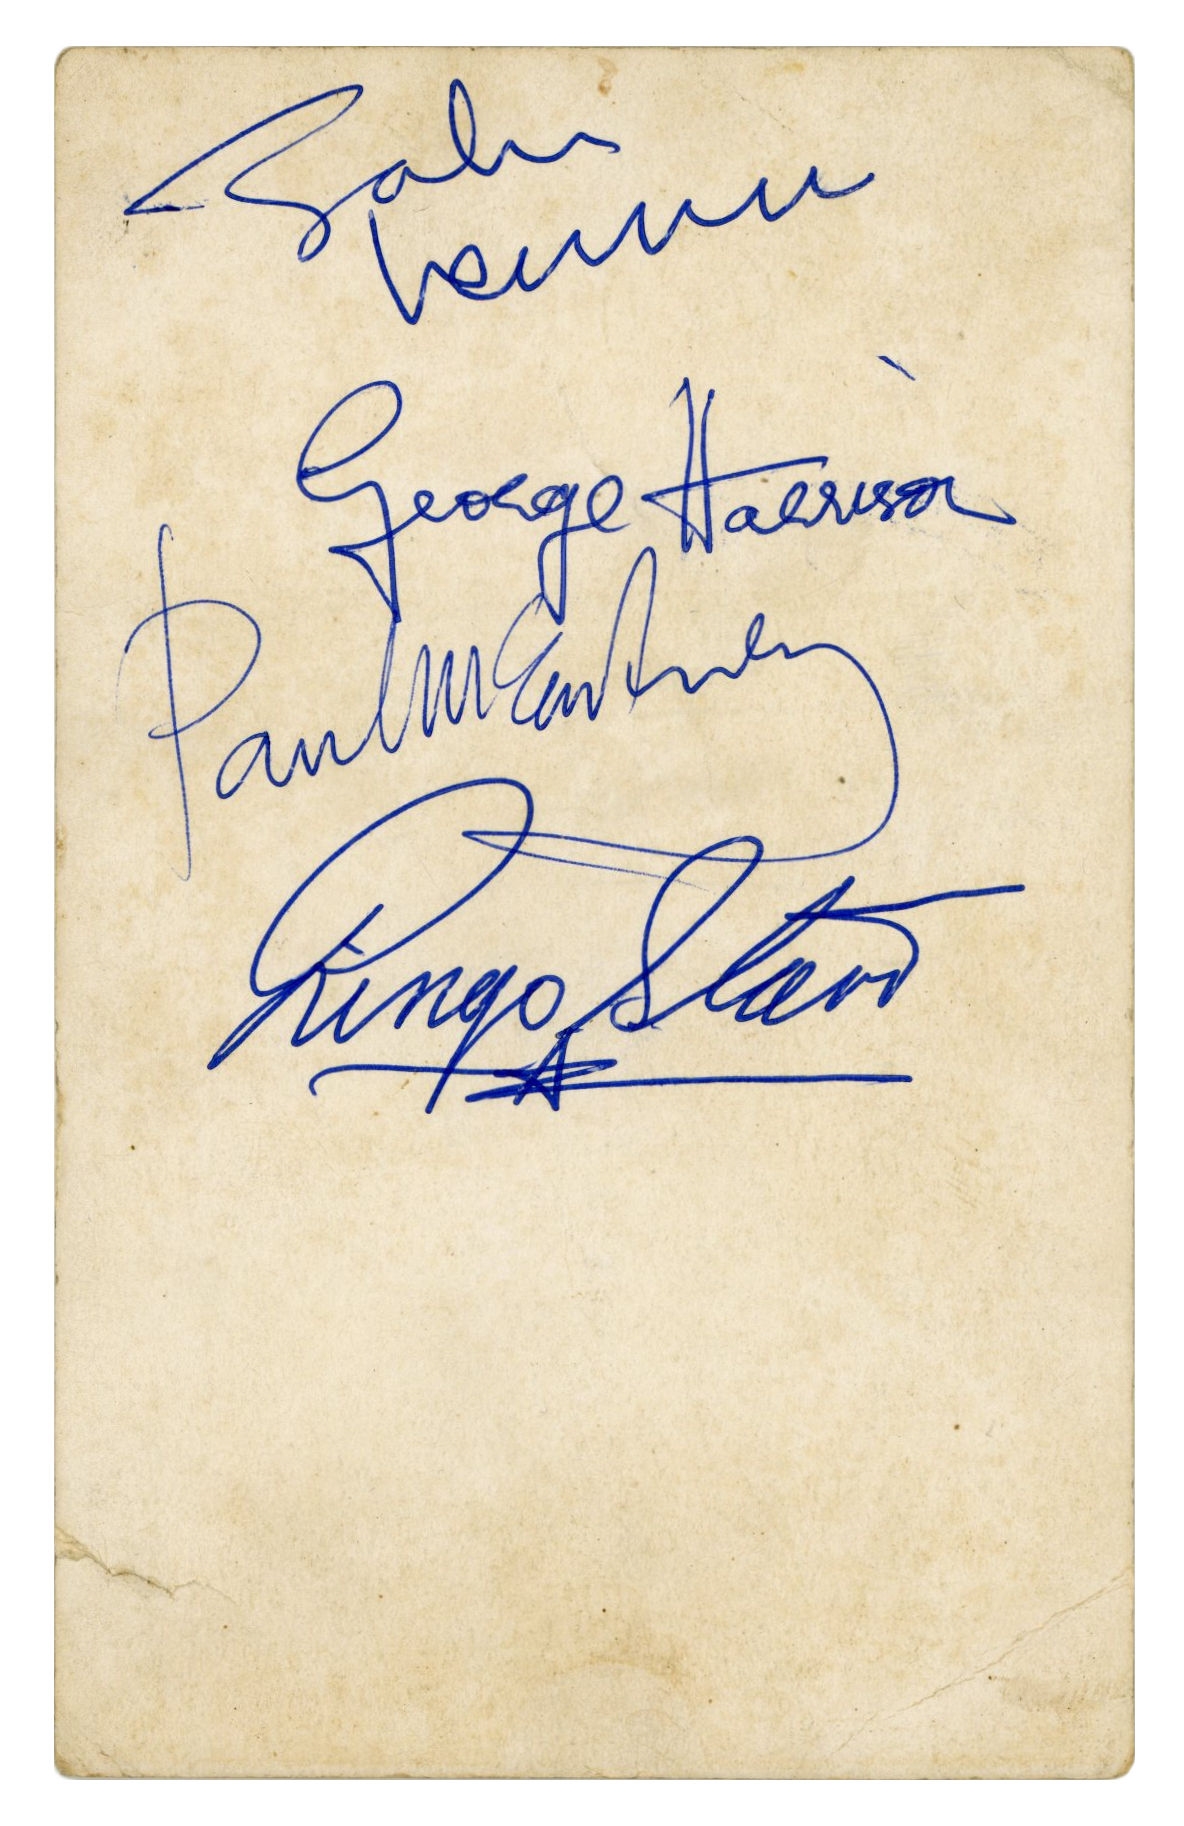 John
Lennon
George Harrison
Paul McCartney
Ringo Starr